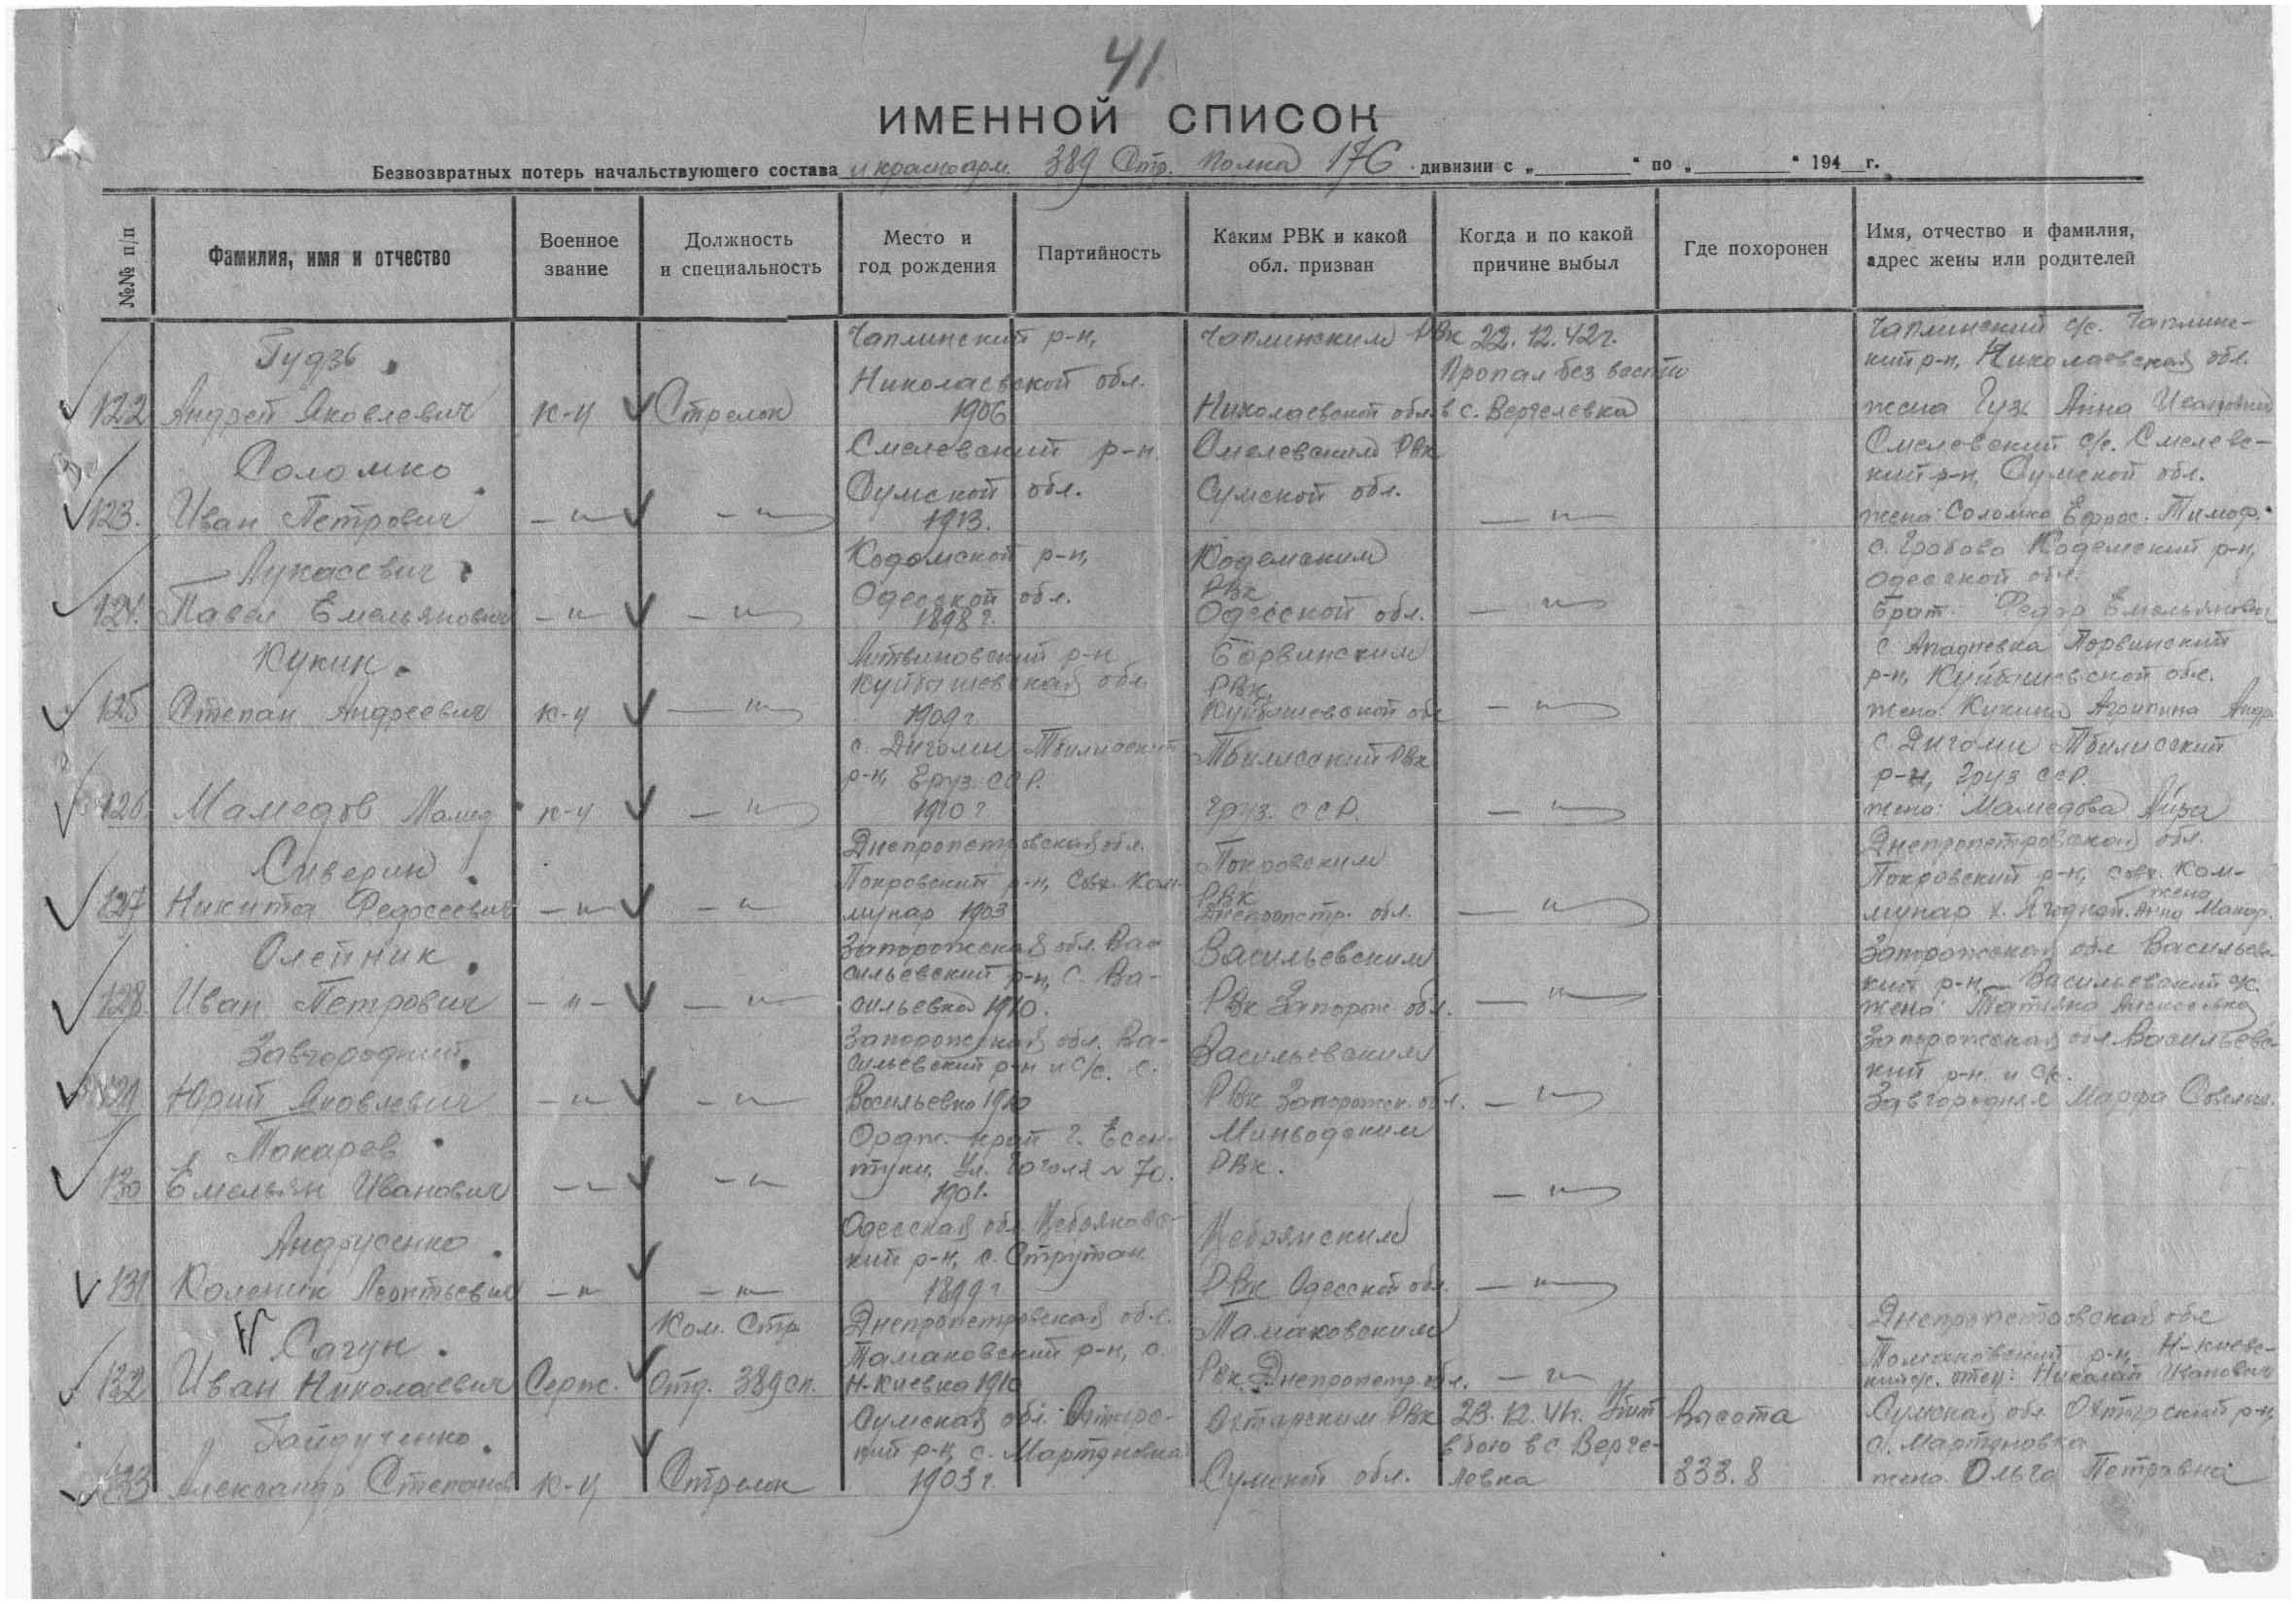 41
ИМЕННОЙ СПИСОК
Безвозвратных потерь начальствующего состава и красноарм. 389 Стр. Полка 176 дивизии с „ " по „ " 194 г.
№№ п/п
Фамилия, имя и отчество
Военное звание
Должность и специальность
Место и год рождения
Партийность
Каким РВК и какой обл. призван
Когда и по какой причине выбыл
Где похоронен
Имя, отчество и фамилия, адрес жены или родителей
Гудзь Чаплинский р-н, Чаплинским РВК 22.12.42г. Чаплинский с/с. Чаплинс-
Николаевской обл. Пропал без вести кий р-н, Николаевская обл.
122 Андрей Яковлевич к-ц Стрелок 1906 Николаевской обл. в с. Вергелевка жена Гузь Анна
Соломко Смелевский р-н. Смелевским РВК Смелевский с/с. Смелевс-
Сумской обл. Сумской обл. кий р-н, Сумской обл.
123. Иван Петрович — " — — " — 1913. — " — жена: Соломко Ефрос. Тимоф.
Лукасевич Кодомской р-н, Кодемским с. Грабово Кодемский р-н,
Одесской обл. РВК Одесской обл.
124. Павел Емельянович — " — — " — 1898 г. Одесской обл. — " — Брат: Федор Емельянович
Кукин Литвиновский р-н Борвинским с. Порвинский
Куйбышевская обл. РВК р-н, Куйбышевской обл.
125 Степан Андреевич к-ц — " — 1909 г Куйбышевской обл — " — жена: Кукина Агрипина Андр.
с. Дигоми Тбилисский Тбилисский РВК с. Дигоми Тбилисский
р-н, Груз. ССР. р-н, Груз ССР.
126. Мамедов Мамед к-ц — " — 1910 г Груз. ССР. — " — жена: Мамедова
Сиверин Днепропетровская обл. Покровским Днепропетровская обл.
Покровский р-н, Совх. Ком- РВК Покровский р-н, совх. Ком-
127 Никита Федосеевич — " — — " — мунар 1903 Днепропетр. обл. — " — мунар х. Ягодной. жена Анна Макар.
Олейник Запорожская обл. Ва- Васильевским Запорожская обл Васильевс-
сильевский р-н, С. Ва- кий р-н, Васильевский с/с.
128. Иван Петрович — " — — " — сильевка 1910. РВК Запорож обл. — " — жена: Татьяна
Завгородний Запорожская обл. Ва- Васильевским Запорожская обл Васильевс-
сильевский р-н и С/с. с. кий р-н и с/с.
129 Юрий Яковлевич — " — — " — Васильевка 1910 РВК Запорожск. обл. — " — Завгородняя Марфа
Токарев Ордж. край г. Есен- Минводским
туки, Ул. Гоголя № 70. РВК.
130 Емельян Иванович — " — — " — 1901. — " —
Андрусенко Одесская обл Цебряковс- Цебрянским
кий р-н, с. Струтан
131 Коленик Леонтьевич — " — — " — 1899 г РВК Одесской обл. — " —
Сагун Ком. Стр Днепропетровская обл. Тамаковским Днепропетровская обл
Тамаковский р-н, с. Томаковский р-н, Н-Киевс-
132 Иван Николаевич Серж. Отд. 389 сп. Н-Киевка 1910 РВК Днепропетр. обл. — " — кий с/с. отец: Николай Иванович
Гайдученко Сумская обл. Актырс- Октарским РВК 23.12.42г. Убит Высота Сумская обл Октырский р-н,
кий р-н, с. Мартуновка в бою в с Верге- с. Мартуновка
133 Александр Степанов к-ц Стрелок 1903 г. Сумской обл. левка 333.8 жена Ольга Петровна